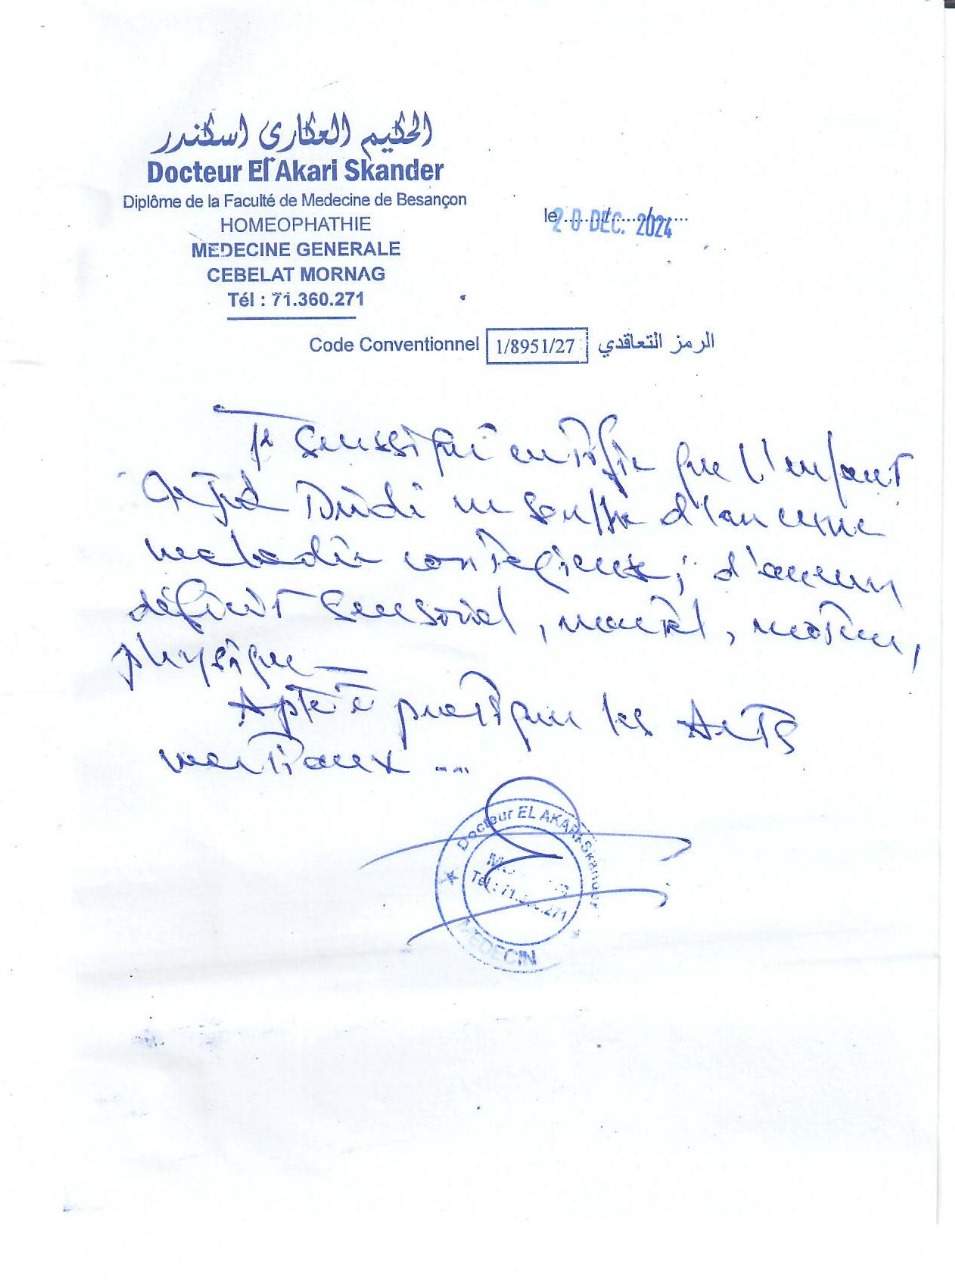 الحكيم العكاري اسكندر
Docteur El Akari Skander
Diplôme de la Faculté de Medecine de Besançon
HOMEOPHATHIE
MEDECINE GENERALE
CEBELAT MORNAG
Tél : 71.360.271
le 20 DEC. 2024
Code Conventionnel 1/8951/27 الرمز التعاقدي
Je soussigné certifie que l'enfant
Dridi ne souffre d'aucune
maladie contagieuse, d'aucun
déficit sensoriel, mental, moteur,
physique
Apte à pratiquer les Arts
martiaux ...
Docteur EL AKARI Skander
Tél : 71.360.271
MEDECIN